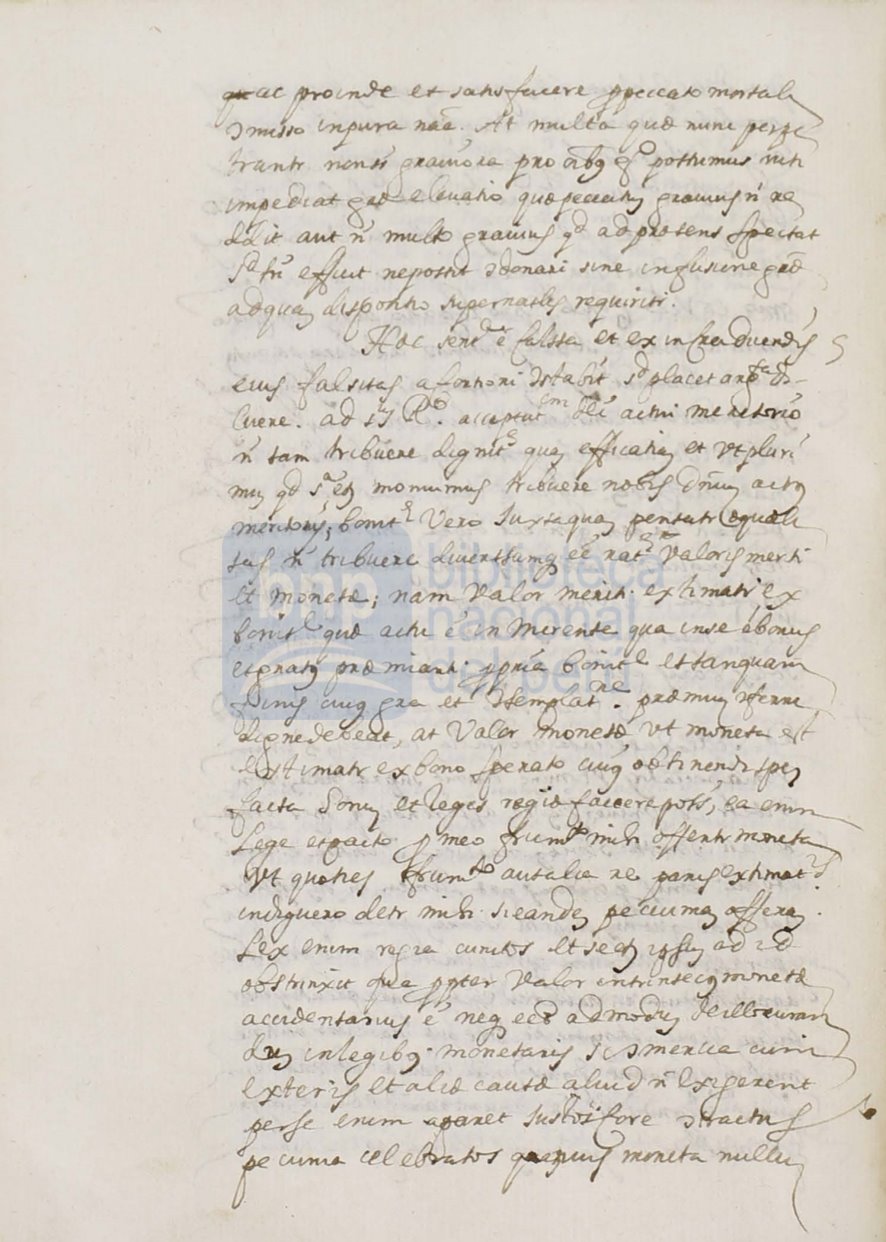 ac proinde et satisfacere peccato mortali
misso in pura naā. At multa quæ nunc perpe
trantr non st graviora pro oībq possumus niti
impediat græ elevatio quæ peccatū gravius n̄ re
ddit aut n̄ multo gravius qd ad præsens spectat
sd tn̄ efficit ne possit donari sine infusione græ
ad quā dispositio supernatlis requiritr.
Hæc sent.ᵃ ē falssa et ex infra dicendis
eius falsitas a fortiori stabit sd placet
luere. ad R.º acceptat.em Dei actui meritorio
n̄ tam tribuere dignit.ē quā efficatiā et ut pluri
mū qd monuimus tribuere nobis actus
meritorii; bonit.ē vero juxta quā pensatr æquali
tas n̄ tribuere diverssamq eē rat.ē valoris meriti
et monetæ; nam valor meriti extimatr ex
bonit.e quæ actu ē in merente qua in se ē bonus
et gratus præmianti propria bonit.e et tanquam
finis cuius gra et templat.ne præmiū ferre
digne debeat, at valor monetæ ut moneta est
extimatr ex bono sperato cuius obtinendi spem
facta et leges regiæ facere potst, ea enim
lege et pacto p meo frum.to mihi offertr moneta
ut quoties frum.to aut alia re
indiguero detr mihi si eandē pecuniam offerā.
Lex enim regia cunctos et seēt ipsū ad id
obstrinxit quia ppter valor intrinsecus monetæ
accidentarius ē neq eēt admodū de illo curan
dū in legibq monetariis si comertia cum
exteris et aliæ causæ aliud n̄ exigerent
per se enim aparet justos fore ractus
pecunia celebratos quamvis moneta nullū